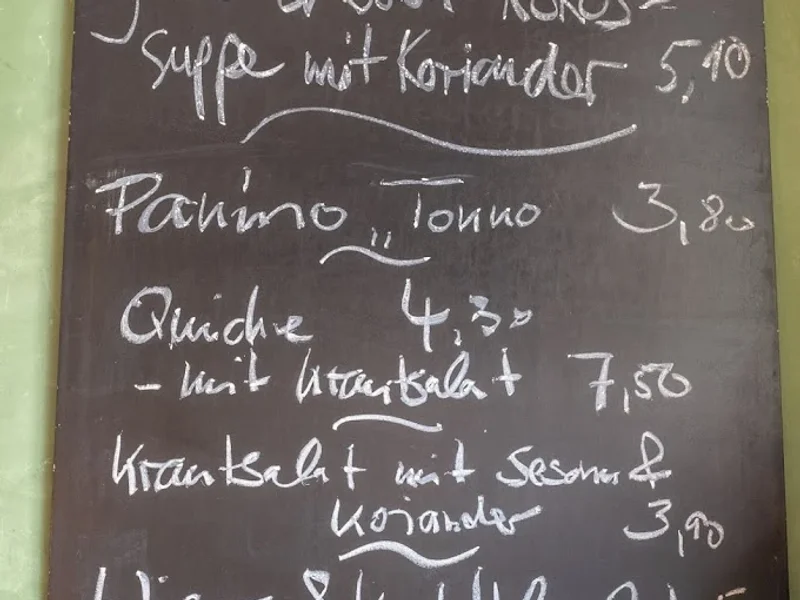 Kokos-
Suppe mit Koriander 5,10
Panino "Tonno 3,80
Quiche 4,30
- mit Krautsalat 7,50
Krautsalat mit Sesam &
Koriander
3,90